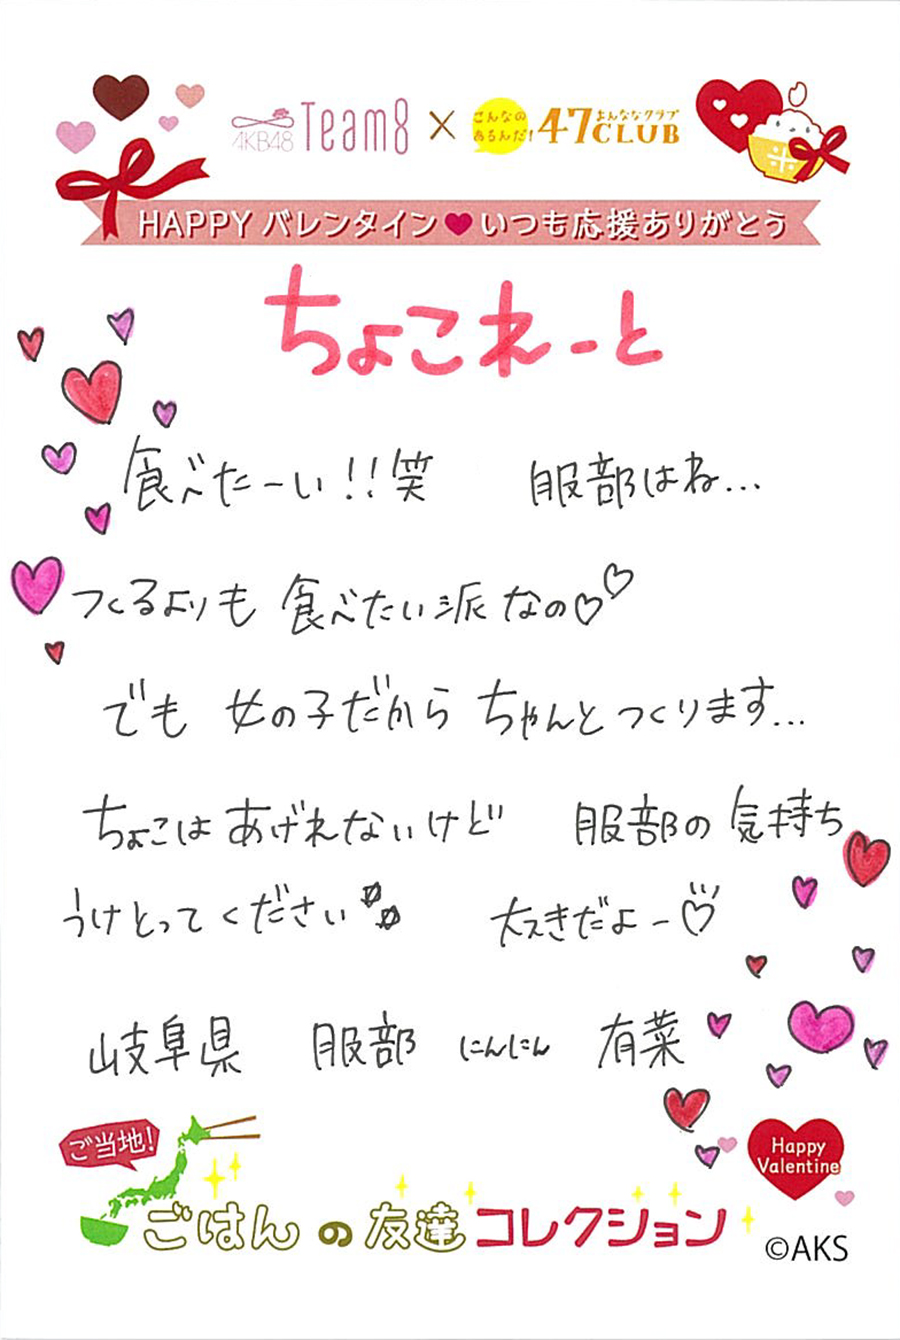 AKB48 Team8 × こんなのあるんだ! 47CLUB よんななクラブ
HAPPY バレンタイン♥いつも応援ありがとう
ちょこれーと
食べたーい!!笑 服部はね...
つくるよりも 食べたい派なの♡♡
でも 女の子だから ちゃんとつくります...
ちょこは あげれないけど 服部の気持ち
うけとってください 大スきだよー♡
岐阜県 服部 にんにん 有菜
ご当地!
ごはんの友達コレクション
Happy
Valentine
©AKS